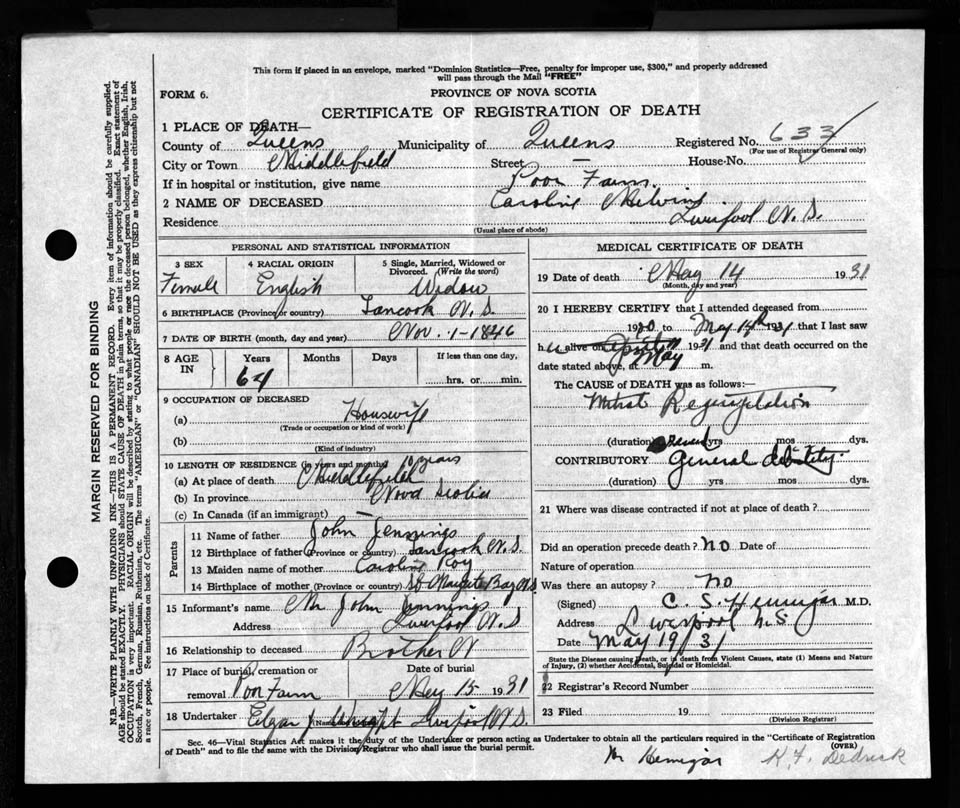 This form if placed in an envelope, marked "Dominion Statistics—Free, penalty for improper use, $300," and properly addressed
will pass through the Mail "FREE"
FORM 6.
PROVINCE OF NOVA SCOTIA
CERTIFICATE OF REGISTRATION OF DEATH
1 PLACE OF DEATH—
County of Queens Municipality of Queens Registered No. 633
(For use of Registrar General only)
City or Town Middlefield Street — House-No.
If in hospital or institution, give name Poor Farm.
2 NAME OF DECEASED Caroline
Residence Liverpool N. S.
(Usual place of abode)
PERSONAL AND STATISTICAL INFORMATION
3 SEX 4 RACIAL ORIGIN 5 Single, Married, Widowed or
Divorced. (Write the word)
Female English Widow
6 BIRTHPLACE (Province or country) Tancook N. S.
7 DATE OF BIRTH (month, day and year) Nov. 1-1846
8 AGE IN Years Months Days If less than one day,
64 hrs. or min.
9 OCCUPATION OF DECEASED
(a) Houswife
(Trade or occupation or kind of work)
(b)
(Kind of industry)
10 LENGTH OF RESIDENCE (in years and months) 10 years
(a) At place of death Middlefield
(b) In province Nova Scotia
(c) In Canada (if an immigrant) —
Parents
11 Name of father John Jennings
12 Birthplace of father (Province or country) Tancook N. S.
13 Maiden name of mother Caroline Roy
14 Birthplace of mother (Province or country) St Bay N.S
15 Informant's name Mr John Jennings
Address Liverpool N. S
16 Relationship to deceased Brother
17 Place of burial, cremation or Date of burial
removal Poor Farm May 15 1931
18 Undertaker Edgar J Wright Liverpool N. S.
MEDICAL CERTIFICATE OF DEATH
19 Date of death May 14 1931
(Month, day and year)
20 I HEREBY CERTIFY that I attended deceased from
1930 to May 14th 1931 that I last saw
her alive on May 1931 and that death occurred on the
date stated above, at m.
The CAUSE of DEATH was as follows:—
Mitral Regurgitation
(duration) Several yrs mos dys.
CONTRIBUTORY general debility
(duration) yrs mos dys.
21 Where was disease contracted if not at place of death?
Did an operation precede death? no Date of
Nature of operation
Was there an autopsy? no
(Signed) C. S. Hennigar M.D.
Address Liverpool N. S.
Date May 19/31
State the Disease causing Death, or in death from Violent Causes, state (1) Means and Nature
of Injury, (2) whether Accidental, Suicidal or Homicidal.
22 Registrar's Record Number
23 Filed 19
(Division Registrar)
Sec. 46—Vital Statistics Act makes it the duty of the Undertaker or person acting as Undertaker to obtain all the particulars required in the "Certificate of Registration
of Death" and to file the same with the Division Registrar who shall issue the burial permit. (OVER)
Hennigar H. F. Dedrick
MARGIN RESERVED FOR BINDING
N.B.—WRITE PLAINLY WITH UNFADING INK—THIS IS A PERMANENT RECORD. Every item of information should be carefully supplied.
AGE should be stated EXACTLY. PHYSICIANS should STATE CAUSE OF DEATH in plain terms, so that it may be properly classified. Exact statement of
OCCUPATION is very important. RACIAL ORIGIN will be described by stating to what people or race the deceased person belonged, whether English, Irish,
Scotch, French, German, Russian, Ruthenian, etc. The terms "AMERICAN" or "CANADIAN" SHOULD NOT BE USED as they express citizenship but not
a race or people. See instructions on back of Certificate.